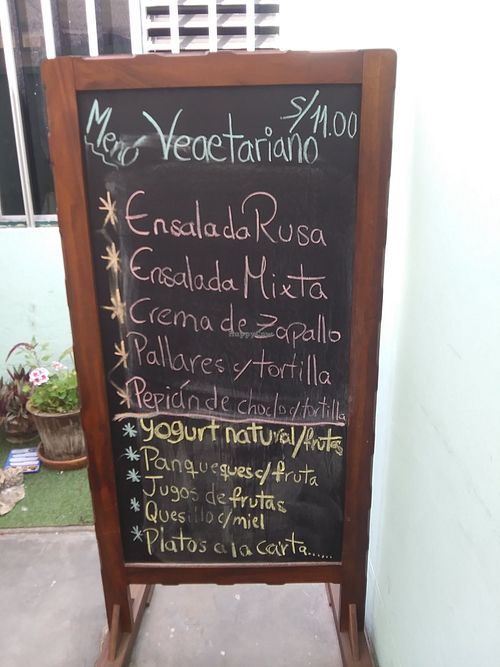 Menú Vegetariano S/11.00
* Ensalada Rusa
* Ensalada Mixta
* Crema de Zapallo
* Pallares c/tortilla
* Pepián de choclo c/tortilla
* yogurt natural/frutas
* Panqueques c/fruta
* Jugos de frutas
* Quesillo c/miel
* Platos a la carta......